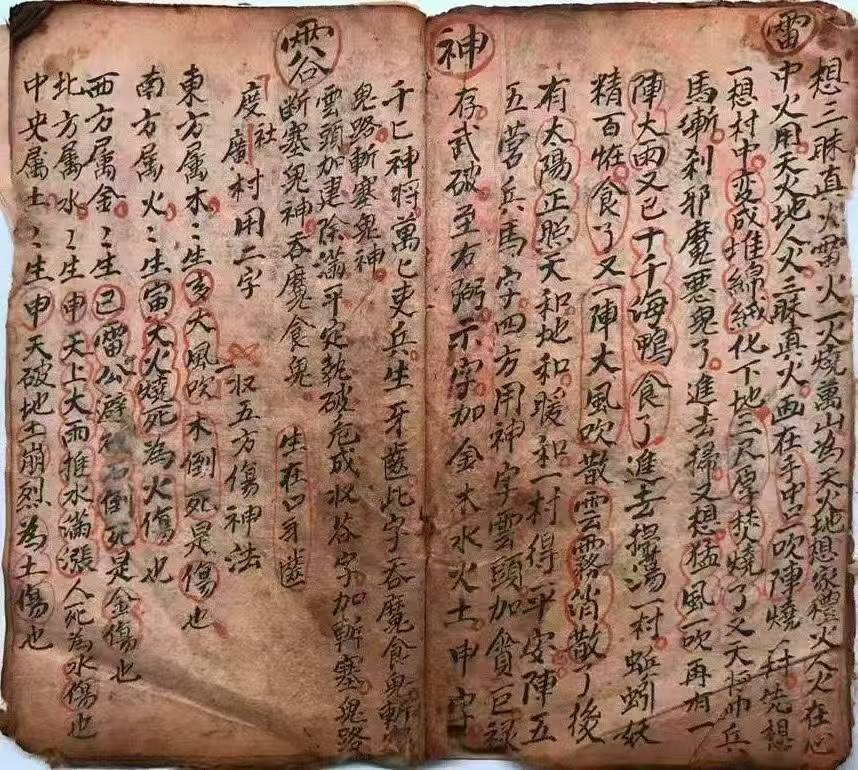 雷
想三昧真火雷火一火燒萬山為天火地想家禮火人火在心
中火用天火地人火三昧真火画在手中二吹陣燒一村先想
一想村中变成堆綿絨化下地三尺厚焚燒了又天将巾兵
馬斬刹邪魔悪鬼了進去掃又想猛風一吹再有一
陣大雨又已十千海鴨食了進去掃蕩一村蚯蚓妖
精百恠食了又一陣大風吹散雲霧消散了後
有太陽正照天和地和暖和一村得平安陣五
五营兵馬字四方用神字雲頭加貪巨禄
存武破至右弼示字加金木水火土申字
神
千匕神将萬匕吏兵生牙齒此字吞魔食鬼斬
鬼路斬塞鬼神
雲頭加建除滿平定執破危成收谷字加斬塞鬼路
断塞鬼神吞魔食鬼 生在口牙齒
度社廟村用二字
霛谷
一収五方傷神法
東方属木〻生亥大風吹木倒死是傷也
南方属火〻生寅大火燒死為火傷也
西方属金〻生己雷公霹倒死是金傷也
北方属水〻生申天上大雨推水滿漲人死為水傷也
中央属土〻生申天破地土崩烈為土傷也